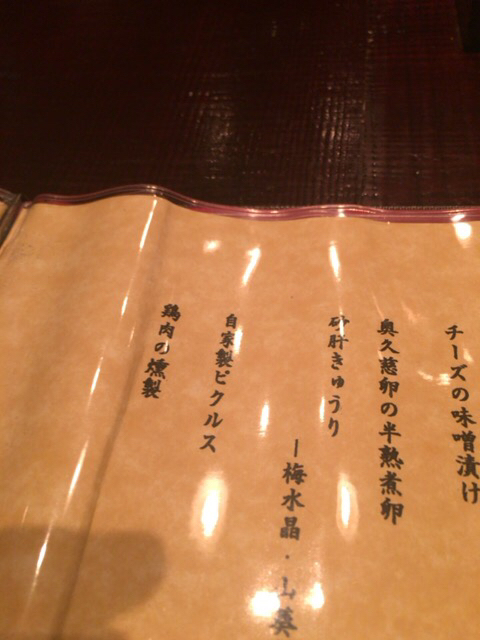 チーズの味噌漬け
奥久慈卵の半熟煮卵
砂肝きゅうり
ー梅水晶・山葵
自家製ピクルス
鶏肉の燻製